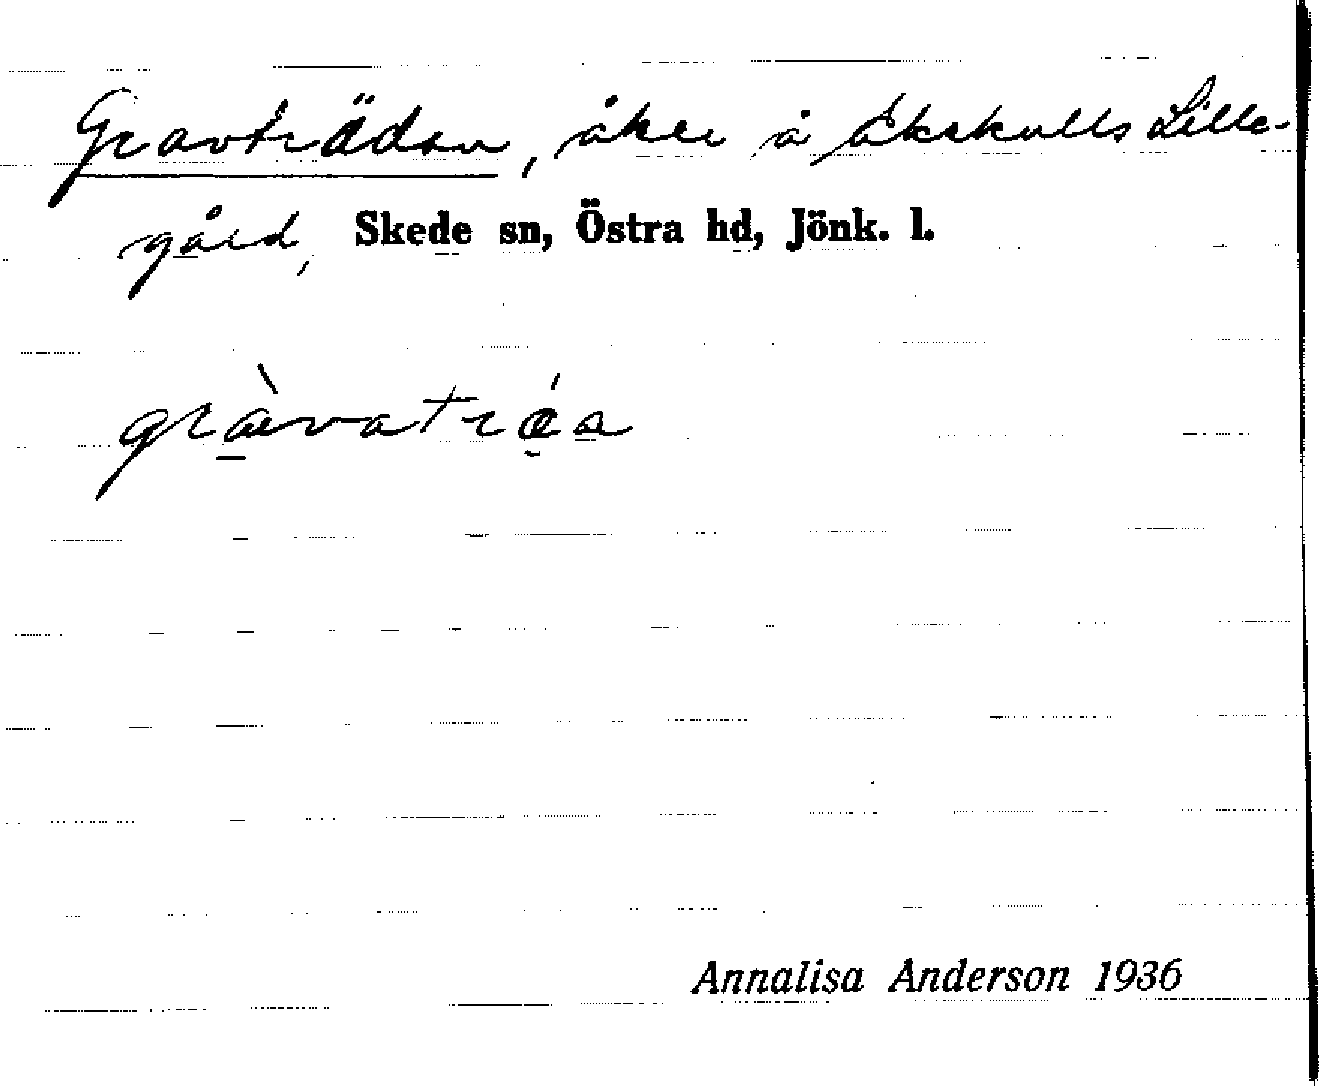 Gravträdan, åker å Ekekulls Lille-
gård, Skede sn, Östra hd, Jönk. l.
gràvatréa
Annalisa Anderson 1936